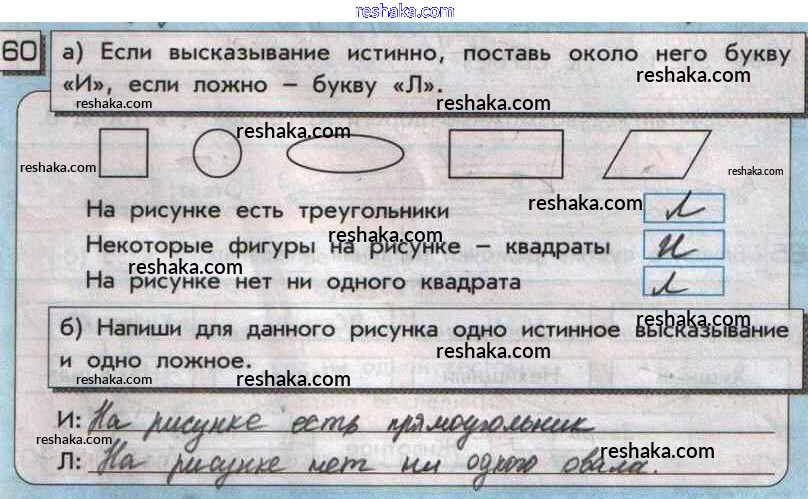 reshaka.com
60
а) Если высказывание истинно, поставь около него букву
reshaka.com
«И», если ложно – букву «Л».
reshaka.com
reshaka.com
reshaka.com
reshaka.com
reshaka.com
reshaka.com
На рисунке есть треугольники
Л
reshaka.com
Некоторые фигуры на рисунке – квадраты
И
reshaka.com
На рисунке нет ни одного квадрата
Л
reshaka.com
б) Напиши для данного рисунка одно истинное высказывание
reshaka.com
и одно ложное.
reshaka.com
reshaka.com
reshaka.com
reshaka.com
И: На рисунке есть прямоугольник
reshaka.com
reshaka.com
Л: На рисунке нет ни одного овала.
reshaka.com